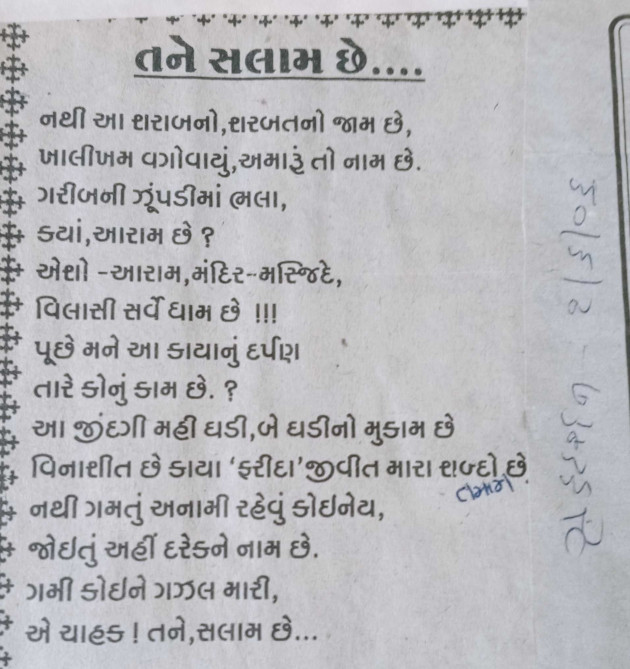 તને સલામ છે....
નથી આ શરાબનો,શરબતનો જામ છે,
ખાલીખમ વગોવાયું,અમારૂં તો નામ છે.
ગરીબની ઝૂંપડીમાં ભલા,
ક્યાં,આરામ છે ?
એશો -આરામ,મંદિર-મસ્જિદે,
વિલાસી સર્વે ધામ છે !!!
પૂછે મને આ કાયાનું દર્પણ
તારે કોનું કામ છે. ?
આ જીંદગી મહી ઘડી,બે ઘડીનો મુકામ છે
વિનાશીત છે કાયા ‘ફરીદા’જીવીત મારા શબ્દો છે
તમામ
નથી ગમતું અનામી રહેવું કોઇનેય,
જોઇતું અહીં દરેકને નામ છે.
ગમી કોઇને ગઝલ મારી,
એ ચાહક ! તને,સલામ છે...